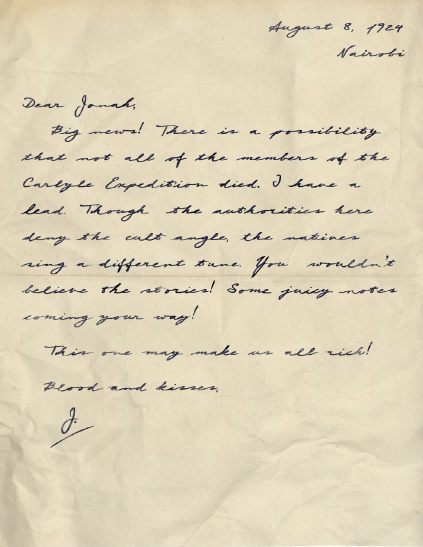 August 8, 1924
Nairobi
Dear Jonah,
Big news! There is a possibility
that not all of the members of the
Carlyle Expedition died. I have a
lead. Though the authorities here
deny the cult angle, the natives
sing a different tune. You wouldn't
believe the stories! Some juicy notes
coming your way!
This one may make us all rich!
Blood and kisses,
J.